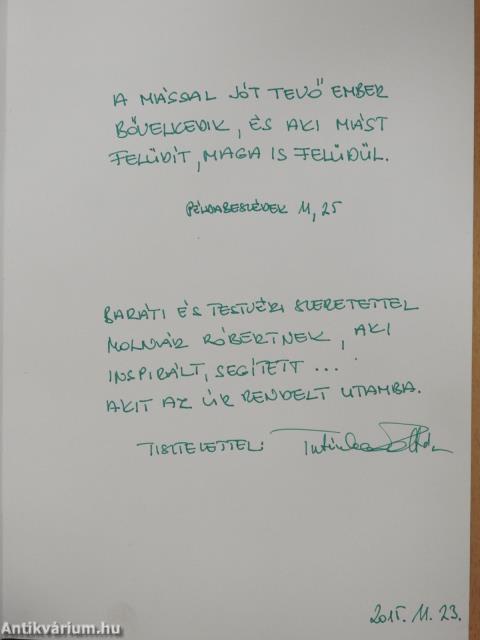 A MÁSSAL JÓT TEVŐ EMBER
BŐVELKEDIK, ÉS AKI MÁST
FELÜDÍT, MAGA IS FELÜDÜL.
PÉLDABESZÉDEK 11, 25
BARÁTI ÉS TESTVÉRI SZERETETTEL
MOLNÁR RÓBERTNEK, AKI
INSPIRÁLT, SEGÍTETT ...
AKIT AZ ÚR RENDELT UTAMBA.
TISZTELETTEL:
2015. 11. 23.
Antikvárium.hu